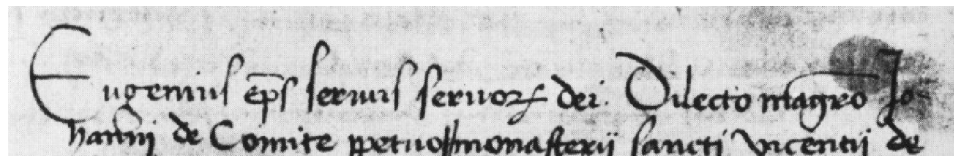 Eugenius ep̄s servus servoꝝ dei. Dilecto mag̅ro Jo-
hanni de Comite ꝑpetuo monasterii sancti vicentii de